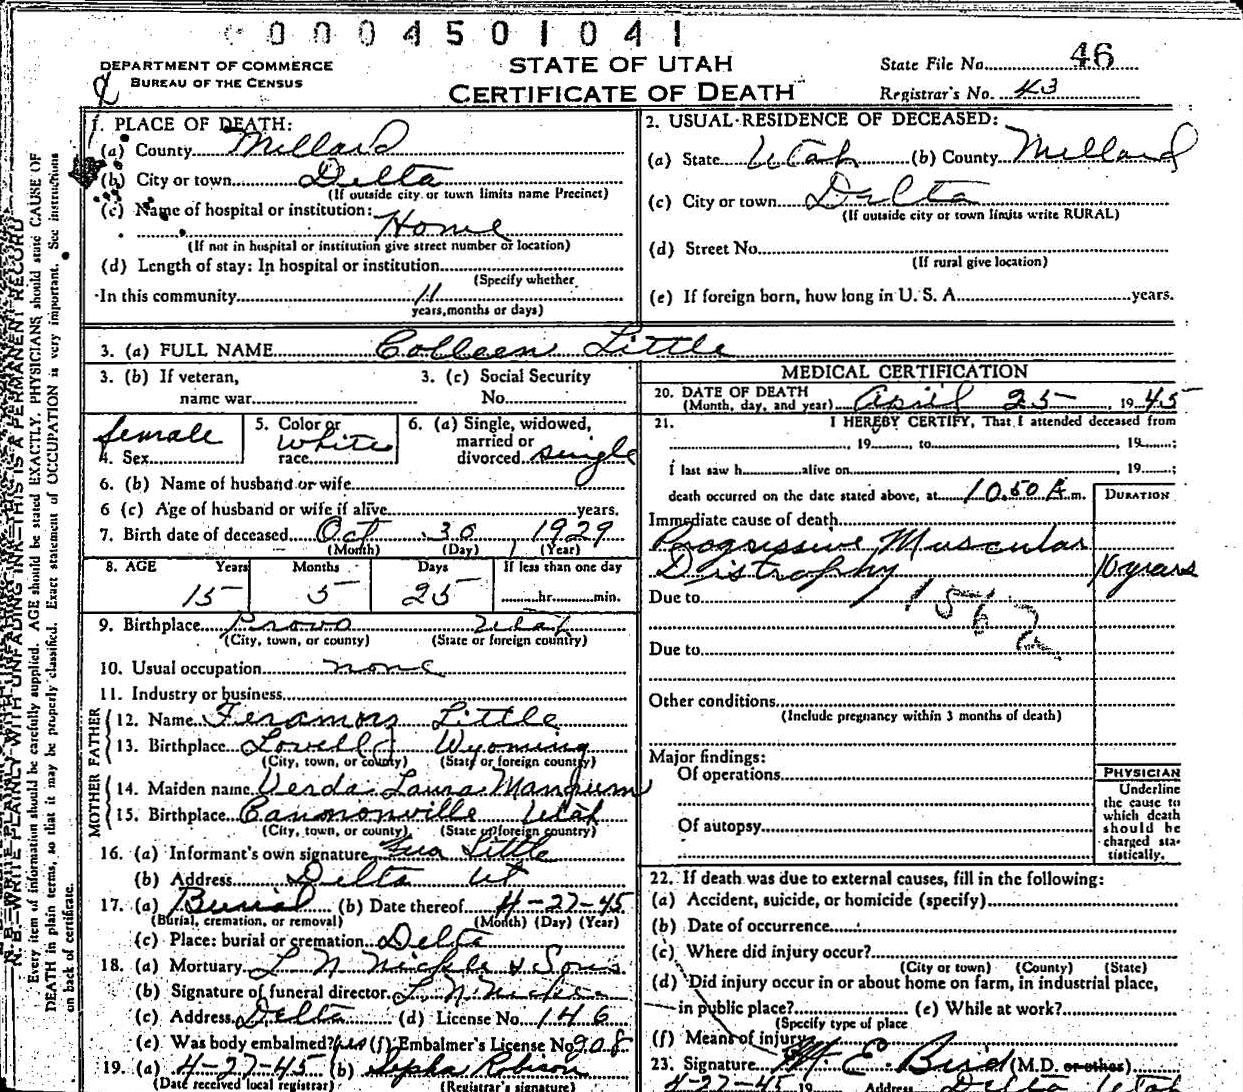 0004501041
DEPARTMENT OF COMMERCE
BUREAU OF THE CENSUS
STATE OF UTAH
CERTIFICATE OF DEATH
State File No. 46
Registrar's No. 43
1. PLACE OF DEATH:
(a) County Millard
(b) City or town Delta
(If outside city or town limits name Precinct)
(c) Name of hospital or institution:
Home
(If not in hospital or institution give street number or location)
(d) Length of stay: In hospital or institution
(Specify whether
In this community 11
years, months or days)
2. USUAL RESIDENCE OF DECEASED:
(a) State Utah (b) County Millard
(c) City or town Delta
(If outside city or town limits write RURAL)
(d) Street No.
(If rural give location)
(e) If foreign born, how long in U. S. A. years.
3. (a) FULL NAME Colleen Little
3. (b) If veteran, name war
3. (c) Social Security No.
4. Sex female
5. Color or race White
6. (a) Single, widowed, married or divorced single
6. (b) Name of husband or wife
6 (c) Age of husband or wife if alive years.
7. Birth date of deceased Oct 30, 1929
(Month) (Day) (Year)
8. AGE Years Months Days If less than one day
15 5 25 hr. min.
9. Birthplace Provo Utah
(City, town, or county) (State or foreign country)
10. Usual occupation none
11. Industry or business
FATHER
12. Name Feramorz Little
13. Birthplace Lovell Wyoming
(City, town, or county) (State or foreign country)
MOTHER
14. Maiden name Verda Laura Mangum
15. Birthplace Cannonville Utah
(City, town, or county) (State or foreign country)
16. (a) Informant's own signature Little
(b) Address Delta Ut
17. (a) Burial (b) Date thereof 4-27-45
(Burial, cremation, or removal) (Month) (Day) (Year)
(c) Place: burial or cremation Delta
18. (a) Mortuary L N Nickle & Sons
(b) Signature of funeral director L. N.
(c) Address Delta (d) License No. 146
(e) Was body embalmed? yes (f) Embalmer's License No. 908
19. (a) 4-27-45 (b) Robison
(Date received local registrar) (Registrar's signature)
MEDICAL CERTIFICATION
20. DATE OF DEATH
(Month, day, and year) April 25, 1945
21. I HEREBY CERTIFY, That I attended deceased from
, 19 , to , 19 ;
I last saw h alive on , 19 ;
death occurred on the date stated above, at 10.50 A m.
DURATION
Immediate cause of death
Progressive Muscular
Distrophy 10 years
Due to
156
Due to
Other conditions
(Include pregnancy within 3 months of death)
Major findings:
Of operations
Of autopsy
PHYSICIAN
Underline
the cause to
which death
should be
charged sta-
tistically.
22. If death was due to external causes, fill in the following:
(a) Accident, suicide, or homicide (specify)
(b) Date of occurrence
(c) Where did injury occur?
(City or town) (County) (State)
(d) Did injury occur in or about home on farm, in industrial place,
in public place? (e) While at work?
(Specify type of place
(f) Means of injury
23. Signature M E Bird (M.D. or other)
4-27-45 19 Address Delta Utah
N. B.—WRITE PLAINLY WITH UNFADING INK—THIS IS A PERMANENT RECORD
Every item of information should be carefully supplied. AGE should be stated EXACTLY. PHYSICIANS should state CAUSE OF
DEATH in plain terms, so that it may be properly classified. Exact statement of OCCUPATION is very important. See instructions
on back of certificate.